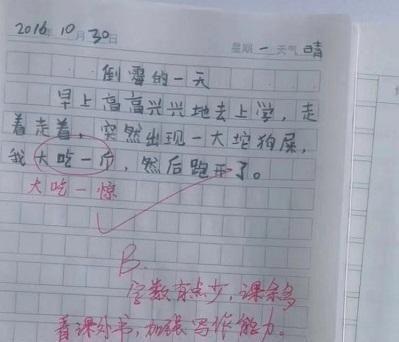 2016年10月30日 星期一天气晴
倒霉的一天
早上高高兴兴地去上学，走
着走着，突然出现一大坨狗屎，
我大吃一斤，然后跑开了。
大吃一惊
B.
字数有点少，课余多
看课外书，加强写作能力。